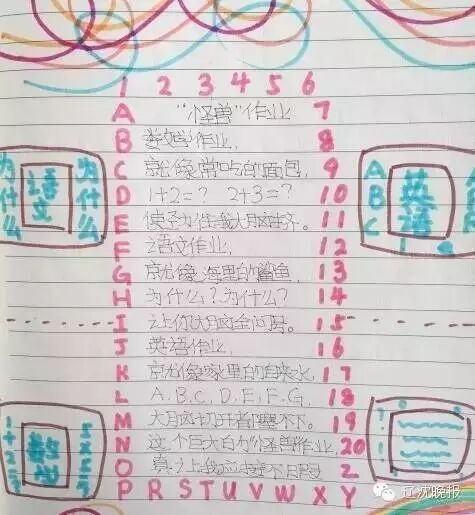 1 2 3 4 5 6
A "怪兽"作业 7
B 数学作业, 8
C 就像常吃的面包, 9
D 1+2=? 2+3=? 10
E 使劲往我大脑挤。 11
F 语文作业, 12
G 就像海里的鲨鱼, 13
H 为什么?为什么? 14
I 让你大脑全问号。 15
J 英语作业, 16
K 就像家里的自来水, 17
L A,B,C,D,E,F,G, 18
M 大脑切开都塞不下。 19
N 这个巨大的"怪兽"作业, 20
O 真让我应接不暇 2
P R S T U V W X Y
为什么
语文
为什么
A B C
英语
数学
辽沈晚报